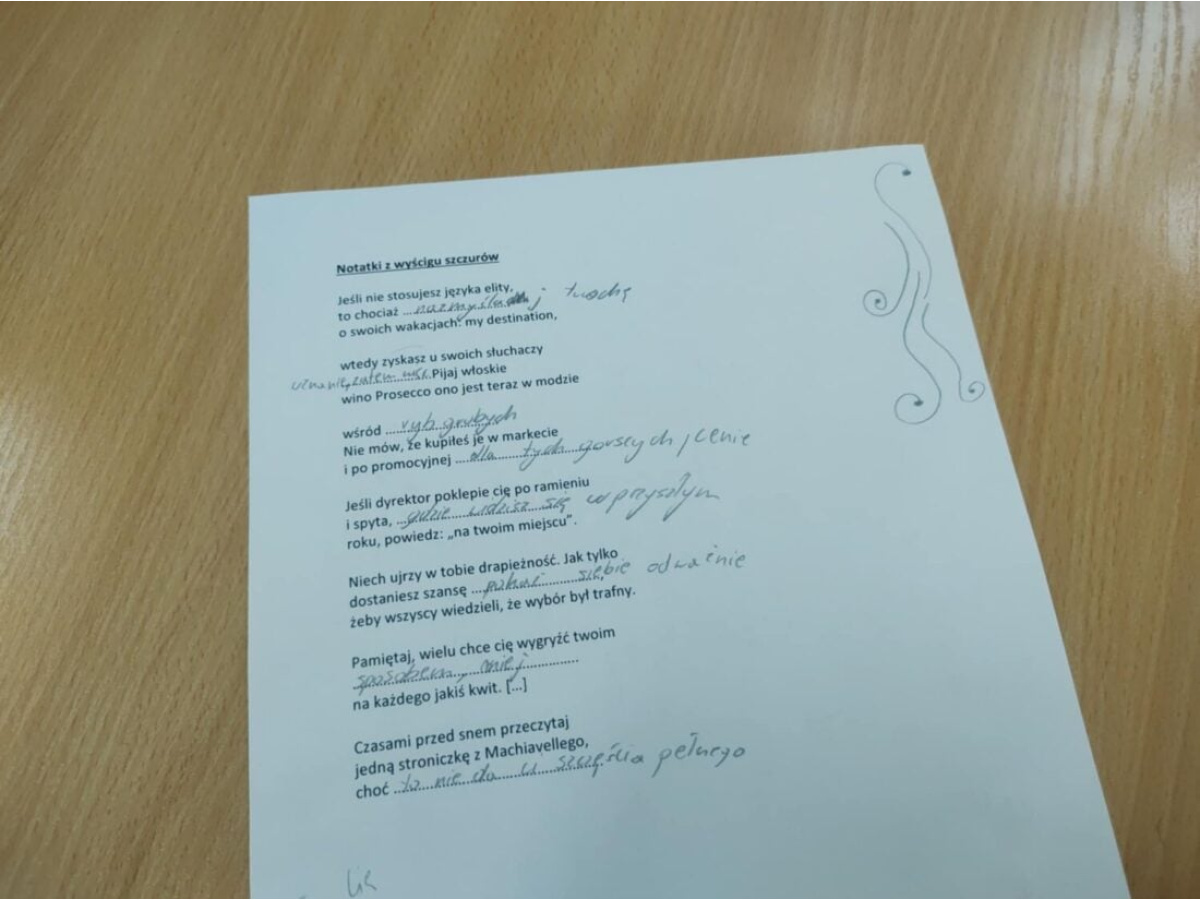 Notatki z wyścigu szczurów
Jeśli nie stosujesz języka elity,
to chociaż ... trochę
o swoich wakacjach: my destination,
wtedy zyskasz u swoich słuchaczy
uznanie, zatem ... Pijaj włoskie
wino Prosecco ono jest teraz w modzie
wśród ... ryb grubych
Nie mów, że kupiłeś je w markecie
i po promocyjnej ... dla tych gorszych, cenie
Jeśli dyrektor poklepie cię po ramieniu
i spyta, ... gdzie widzisz się w przyszłym
roku, powiedz: „na twoim miejscu”.
Niech ujrzy w tobie drapieżność. Jak tylko
dostaniesz szansę ... pokaż siebie odważnie
żeby wszyscy wiedzieli, że wybór był trafny.
Pamiętaj, wielu chce cię wygryźć twoim
sposobem, miej
na każdego jakiś kwit. [...]
Czasami przed snem przeczytaj
jedną stroniczkę z Machiavellego,
choć ... to nie da ci szczęścia pełnego